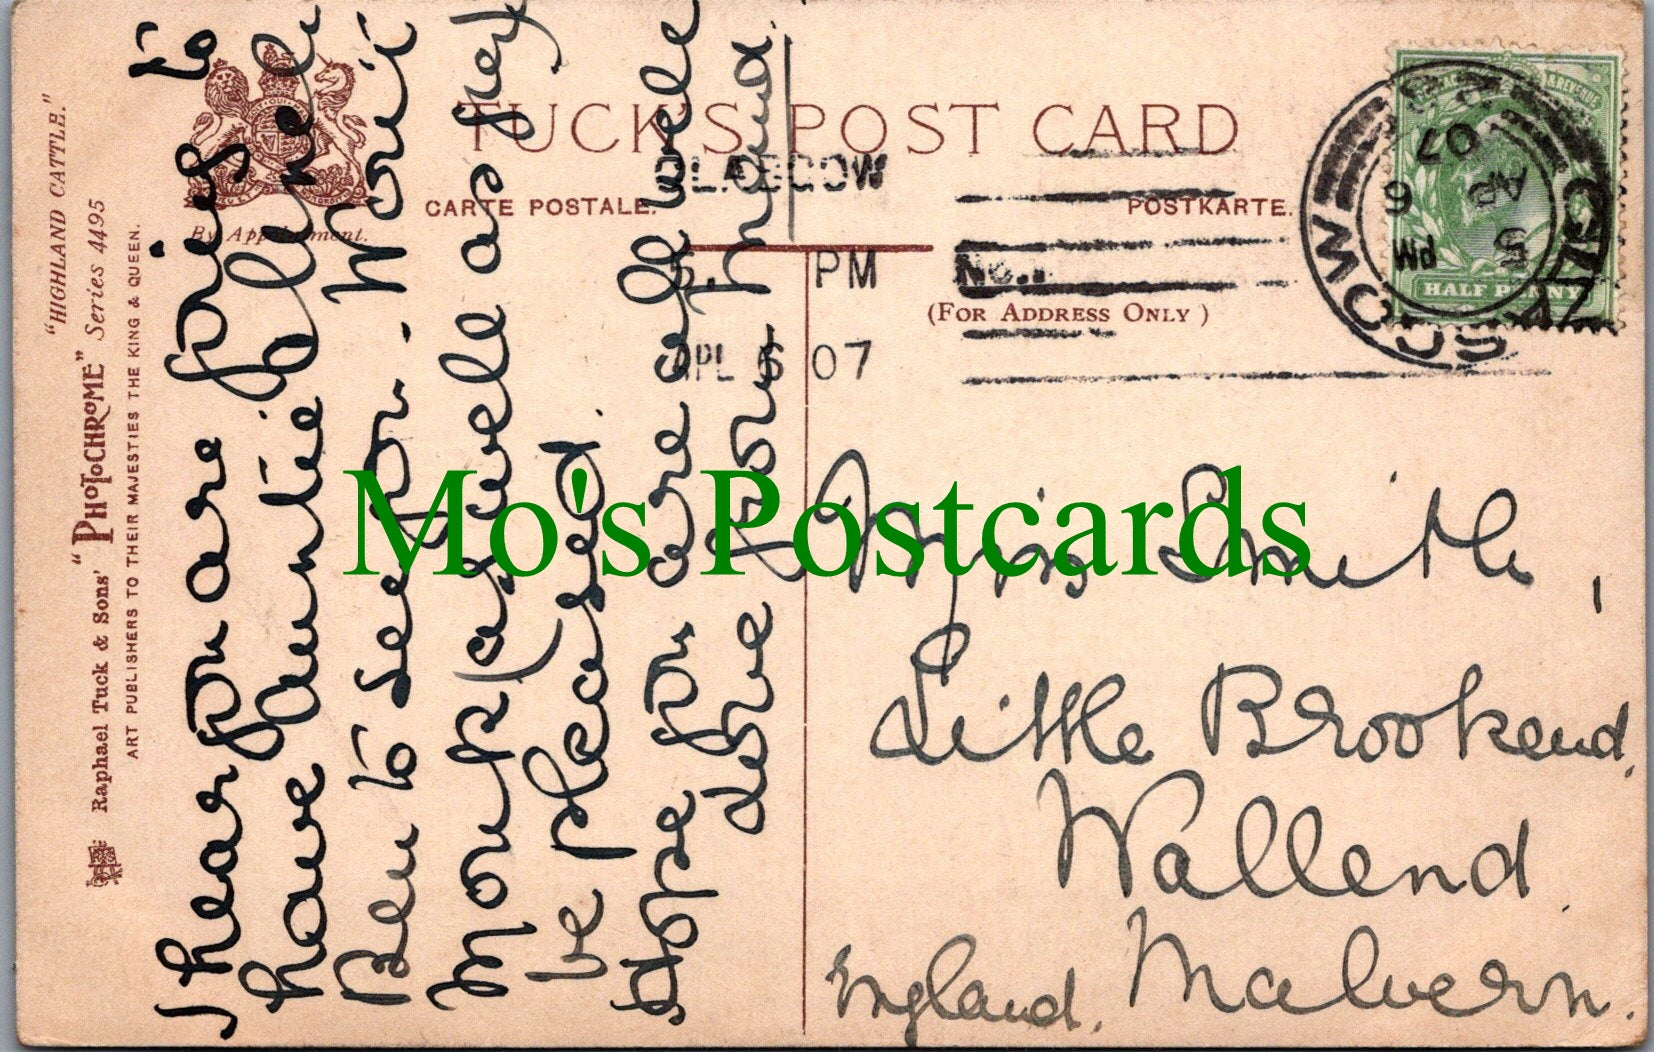 "HIGHLAND CATTLE."
Raphael Tuck & Sons' "PHOTOCHROME" Series 4495
ART PUBLISHERS TO THEIR MAJESTIES THE KING & QUEEN.
By Appointment.
TUCK'S POST CARD
CARTE POSTALE.
POSTKARTE.
(FOR ADDRESS ONLY)
GLASGOW
5 PM
APL 5 07
No.1
GLASGOW
6 PM
AP 5
07
POSTAGE & REVENUE
HALF PENNY
I hear you are going to
have Auntie
Ben to see you. Won't
be pleased.
Hope you are all well
Miss Smith,
Little Brookend,
Wallend
Malvern.
England.
Mo's Postcards